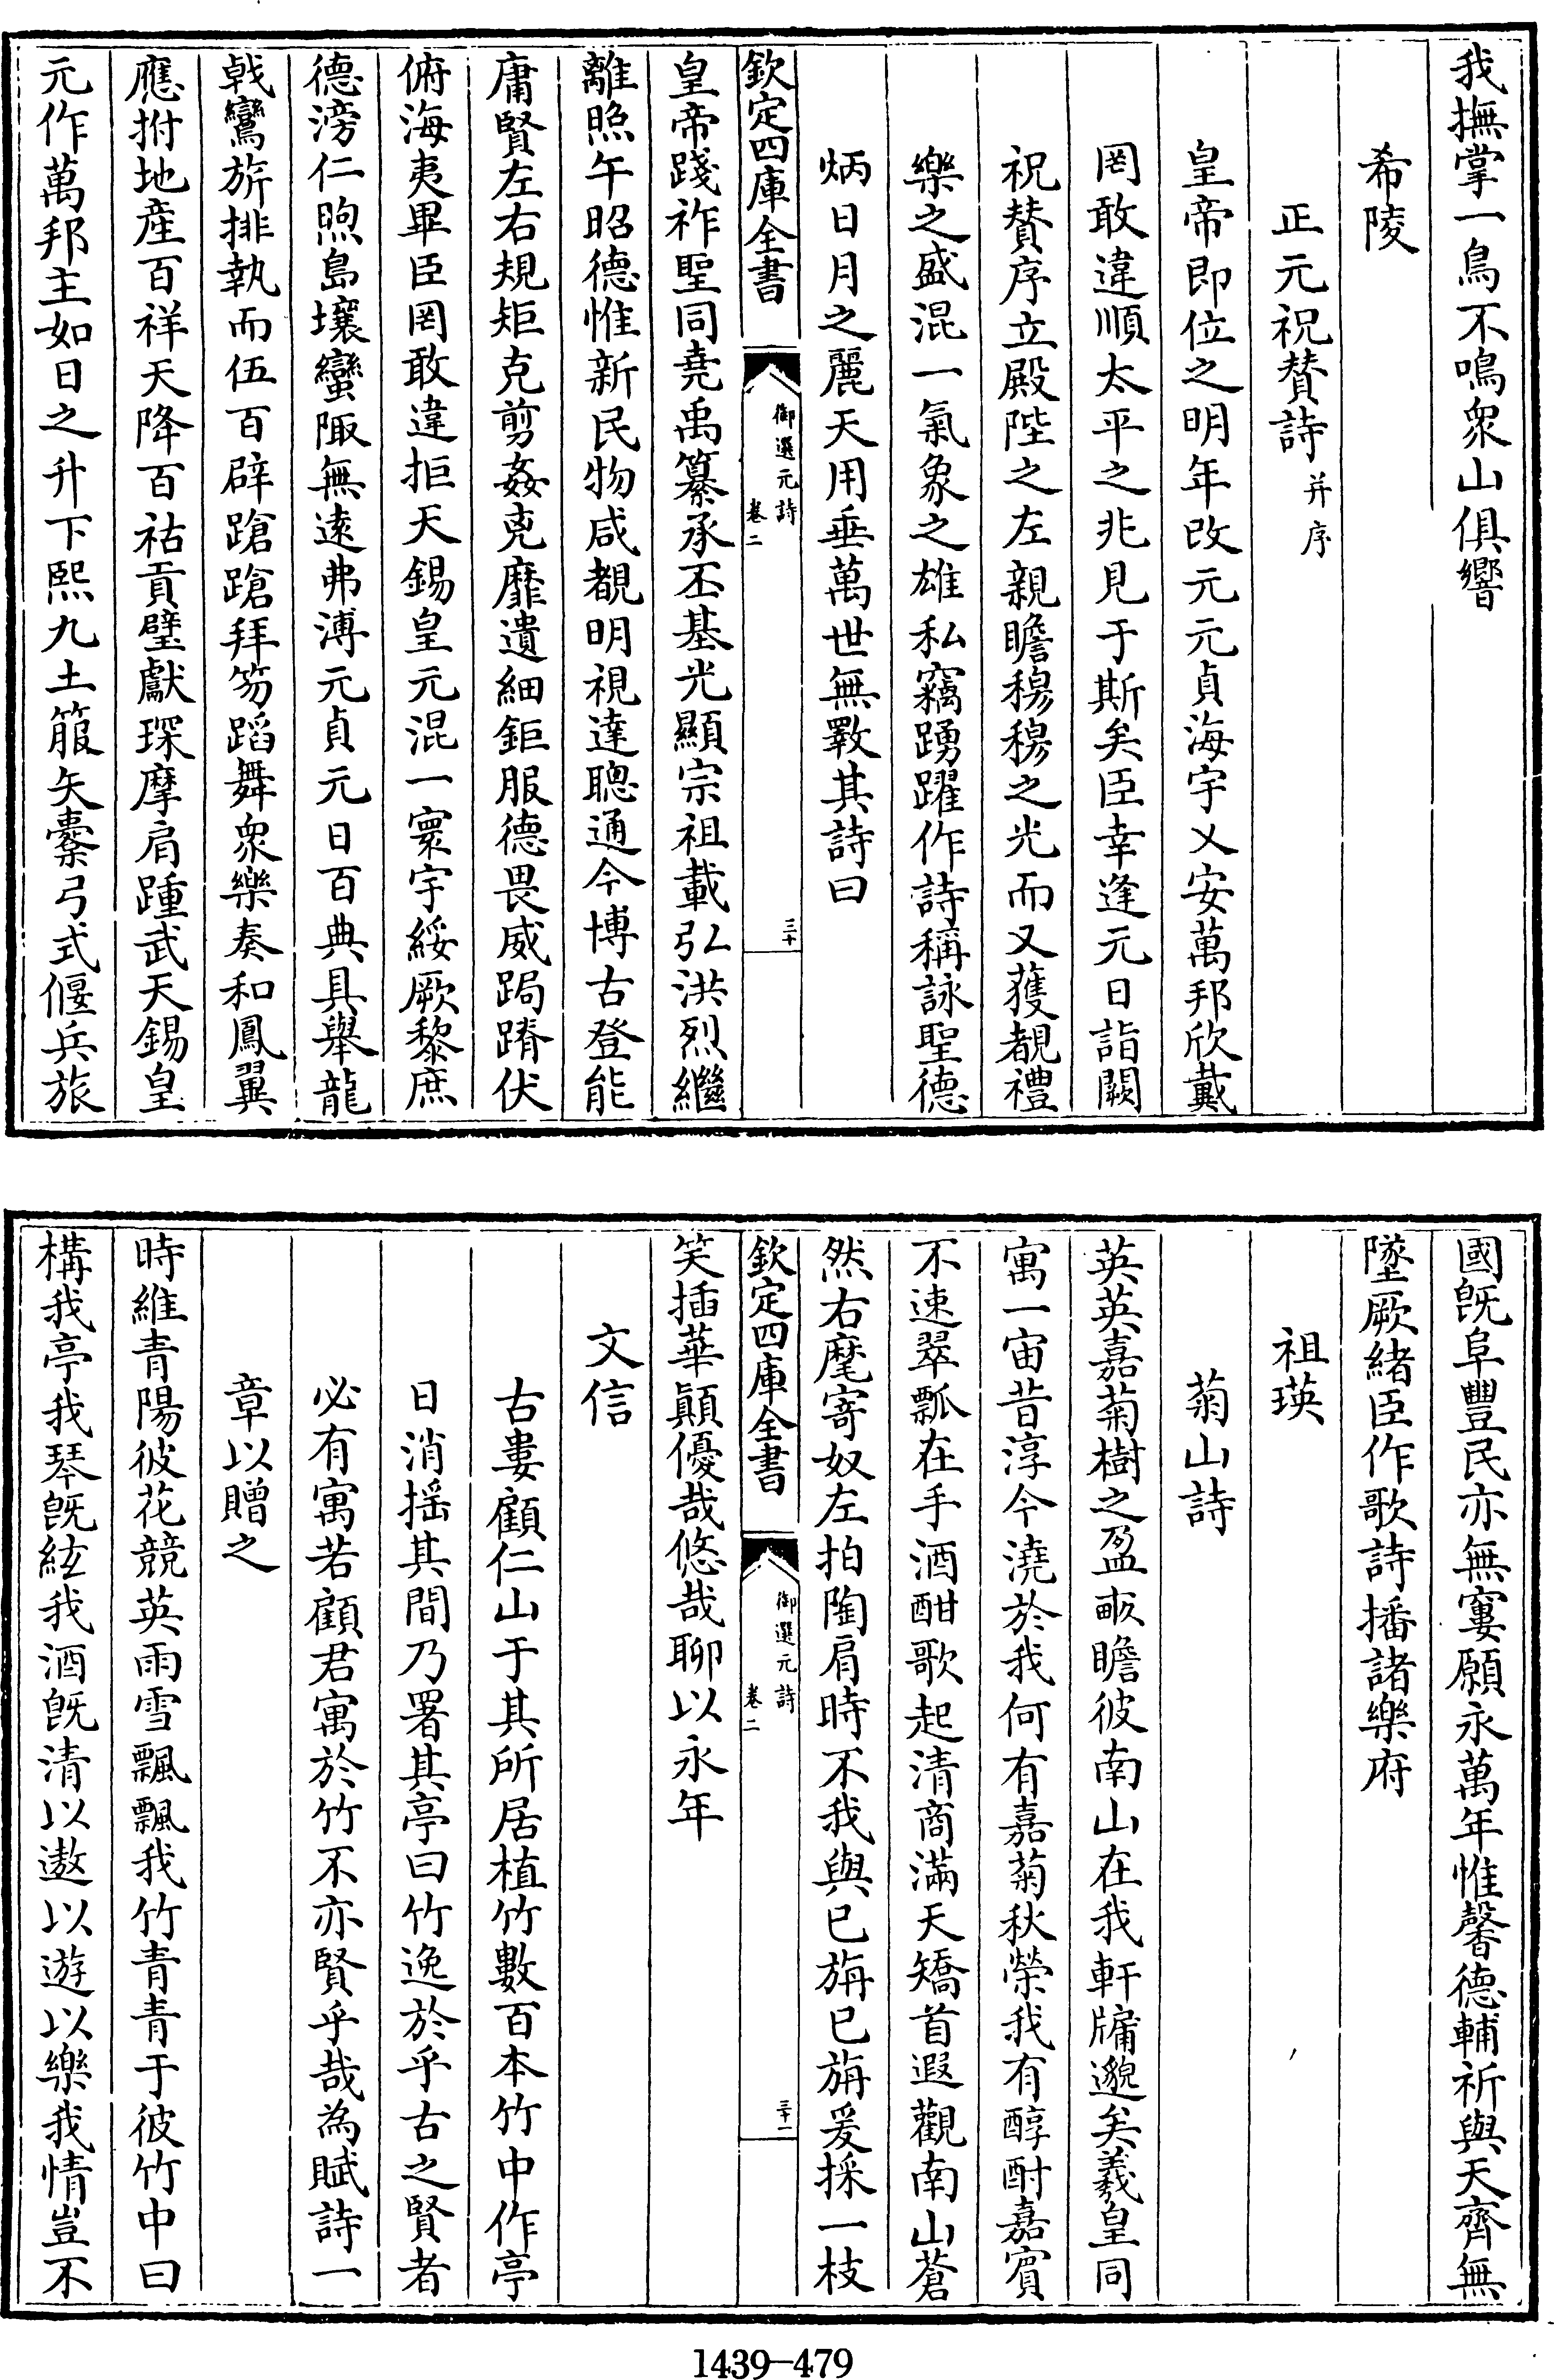 我撫掌一鳥不鳴衆山俱響
希陵
正元祝賛詩并序
皇帝即位之明年改元元貞海宇乂安萬邦欣戴
罔敢違順太平之兆見于斯矣臣幸逢元日詣闕
祝賛序立殿陛之左親瞻穆穆之光而又獲覩禮
樂之盛混一氣象之雄私竊踴躍作詩稱詠聖德
炳日月之麗天用垂萬世無斁其詩曰
欽定四庫全書
御選元詩
卷二
三十
皇帝踐祚聖同堯禹纂承丕基光顯宗祖載弘洪烈繼
離照午昭德惟新民物咸覩明視達聰通今博古登能
庸賢左右規矩克剪姦兇靡遺細鉅服德畏威跼蹐伏
俯海夷畢臣罔敢違拒天錫皇元混一寰宇綏厥黎庶
德滂仁煦島壤蠻陬無遠弗溥元貞元日百典具舉龍
戟鸞旂排執而伍百辟蹌蹌拜笏蹈舞衆樂奏和鳳翼
應拊地産百祥天降百祜貢璧獻琛摩肩踵武天錫皇
元作萬邦主如日之升下熙九土箙矢櫜弓式偃兵旅
國旣阜豐民亦無窶願永萬年惟馨德輔祈與天齊無
墜厥緒臣作歌詩播諸樂府
祖瑛
菊山詩
英英嘉菊樹之盈畝瞻彼南山在我軒牖邈矣羲皇同
寓一宙昔淳今澆於我何有嘉菊秋榮我有醇酎嘉賓
不速翠瓢在手酒酣歌起清商滿天矯首遐觀南山蒼
然右麾寄奴左拍陶肩時不我與已旃已旃爰採一枝
欽定四庫全書
御選元詩
卷二
三十一
笑插華顚優哉悠哉聊以永年
文信
古婁顧仁山于其所居植竹數百本竹中作亭
日消揺其間乃署其亭曰竹逸於乎古之賢者
必有寓若顧君寓於竹不亦賢乎哉為賦詩一
章以贈之
時維青陽彼花競英雨雪飄飄我竹青青于彼竹中曰
構我亭我琴旣絃我酒旣清以遨以遊以樂我情豈不
1439—479